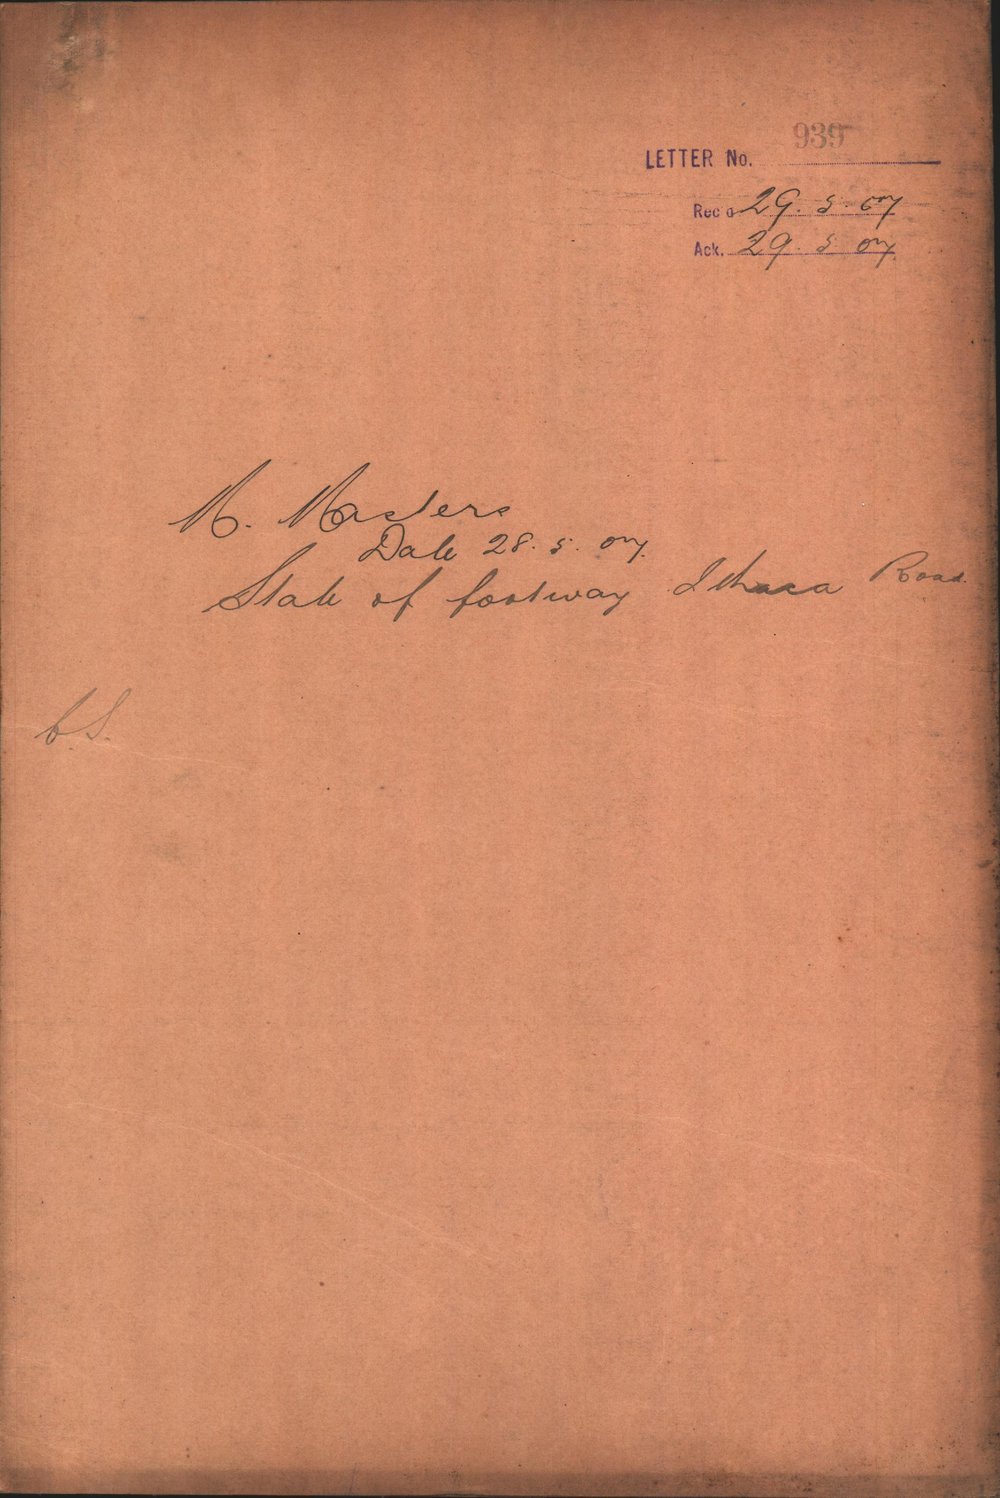 939
LETTER No.
Rec'd 29. 5. 07
Ack. 29. 5. 07.
M. Masters
Date 28. 5. 07.
State of footway Ithaca Road.
C.S.